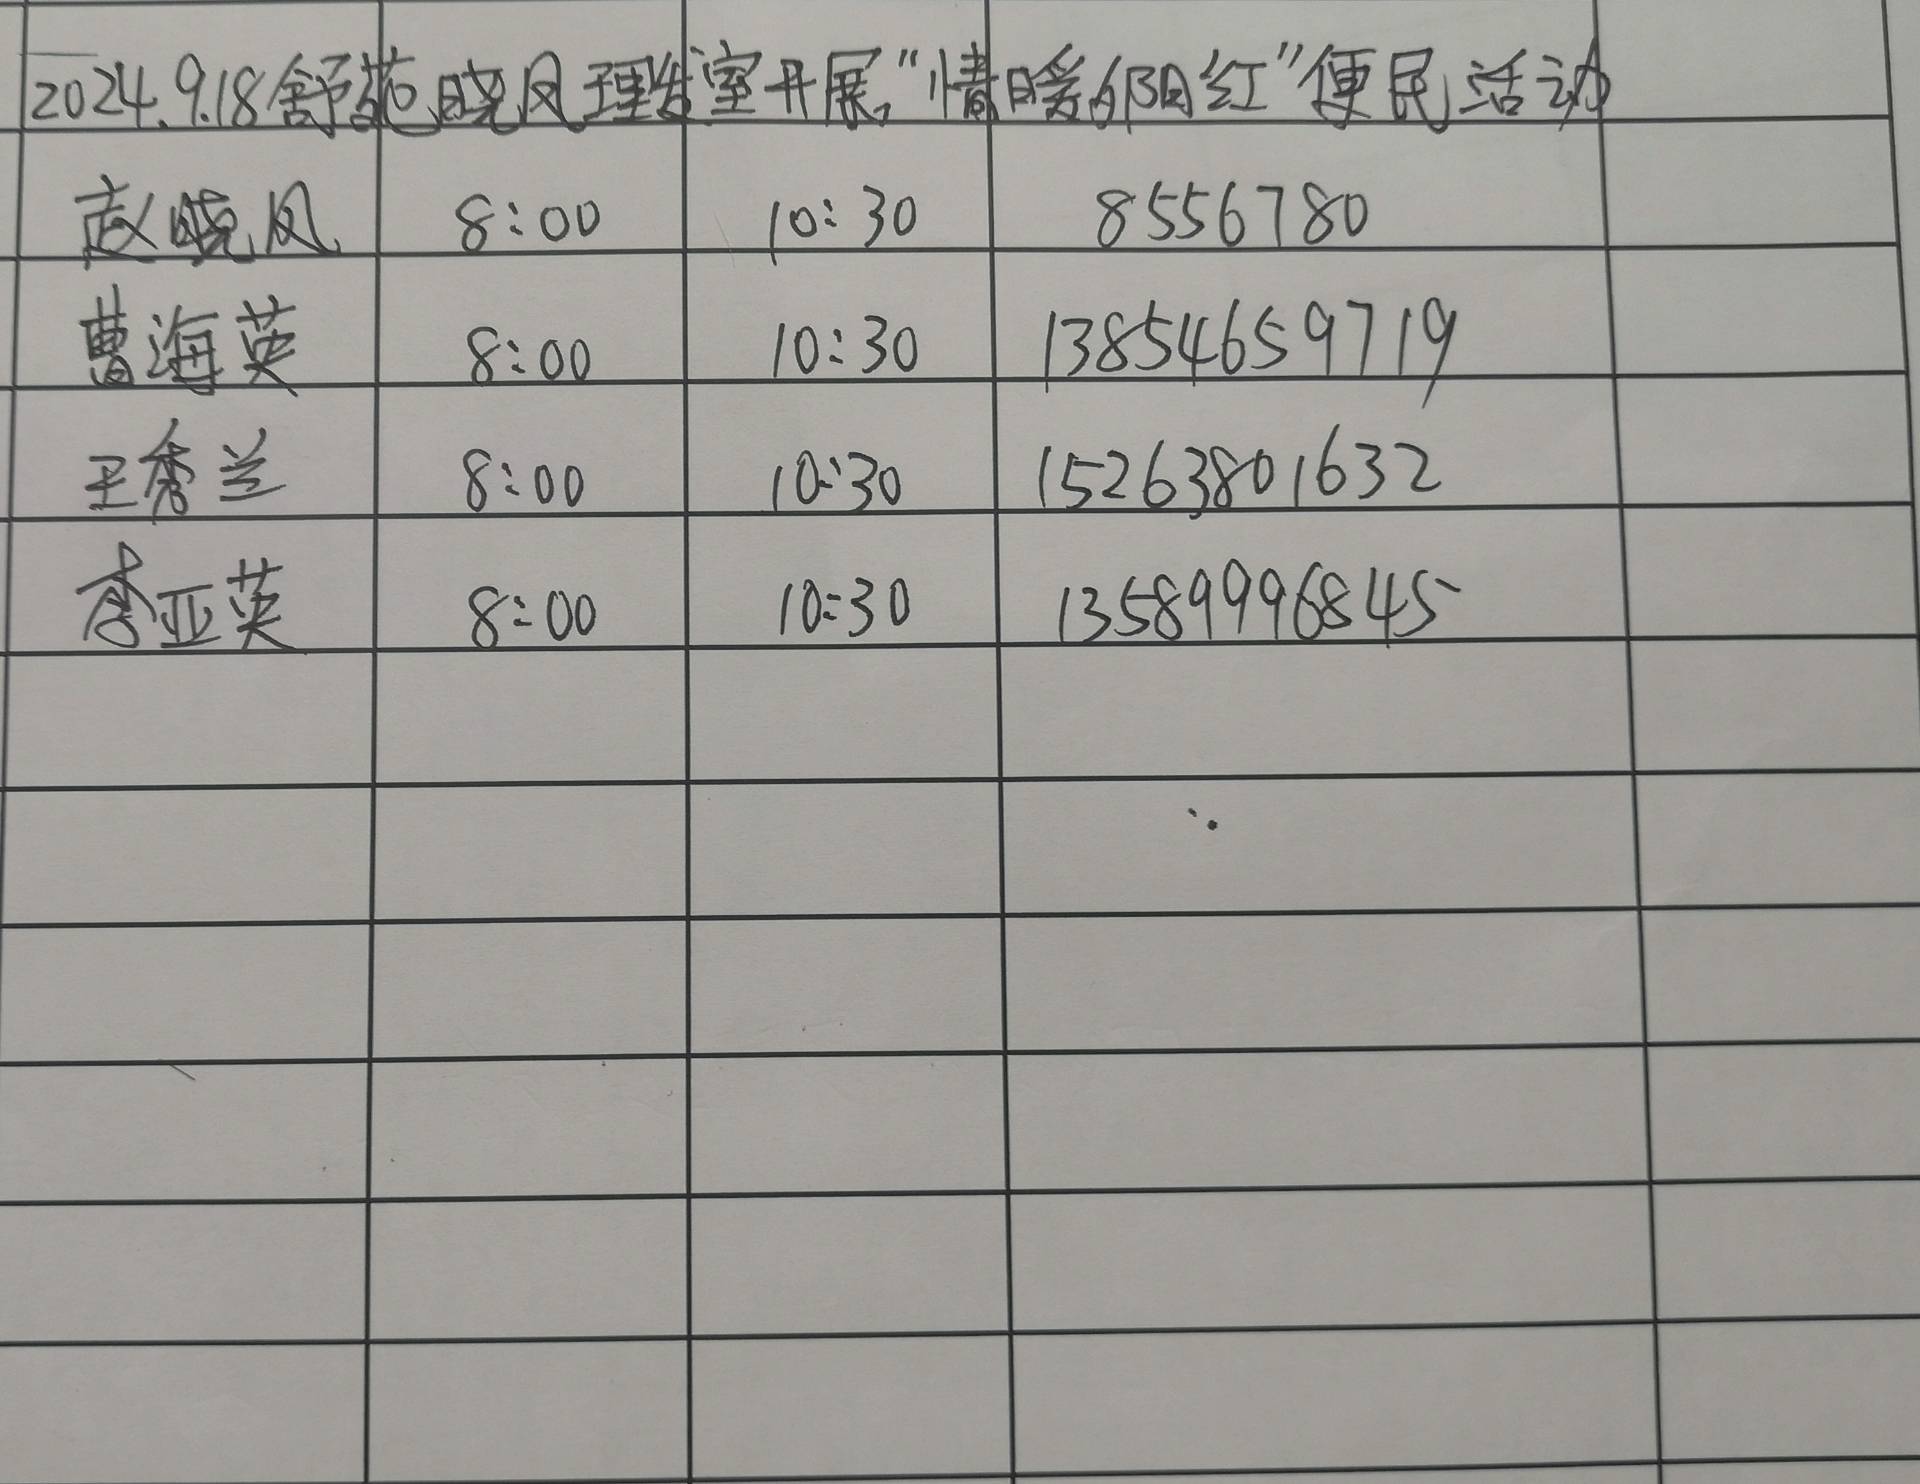 2024.9.18舒苑晓风理发室开展"情暖夕阳红"便民活动
赵晓风 8:00 10:30 8556780
曹海英 8:00 10:30 13854659719
王秀兰 8:00 10:30 15263801632
李亚英 8:00 10:30 13589996845